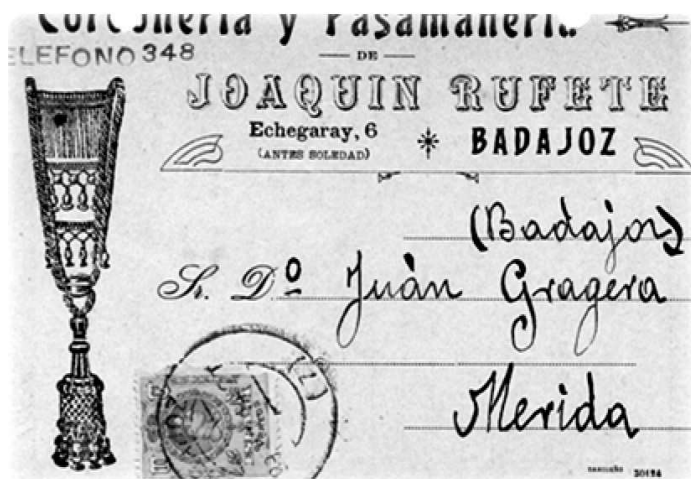 Cordonería y Pasamanería
TELEFONO 348
DE
JOAQUIN RUFETE
Echegaray, 6
(ANTES SOLEDAD)
BADAJOZ
(Badajoz)
Sr. Dº Juàn Gragera
Merida